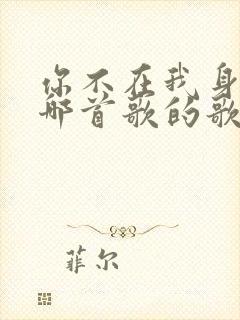 你不在我身
那首歌的歌
菲尔